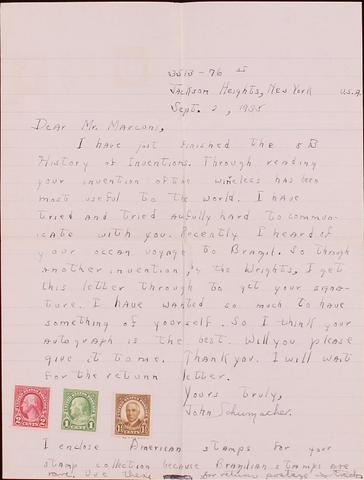 3513-76 st
Jackson Heights, New York U.S.A.
Sept. 2, 1935
Dear Mr. Marconi,
I have just finished the 5B
History of Inventions. Through reading
your invention of the wireless has been
most useful to the world. I have
tried and tried awfully hard to commun-
icate with you. Recently I heard of
your ocean voyage to Brazil. So though
another invention, by the Wrights, I get
this letter through to get your signa-
ture. I have wanted so much to have
something of yourself. So I think your
autograph is the best. Will you please
give it to me. Thank you. I will wait
for the return letter.
Yours truly,
John Schumacher.
2 CENTS 2
1 CENT 1
CENTS
I enclose American stamps for your
stamp collection because Brazilian stamps are
rare. Use these for return postage